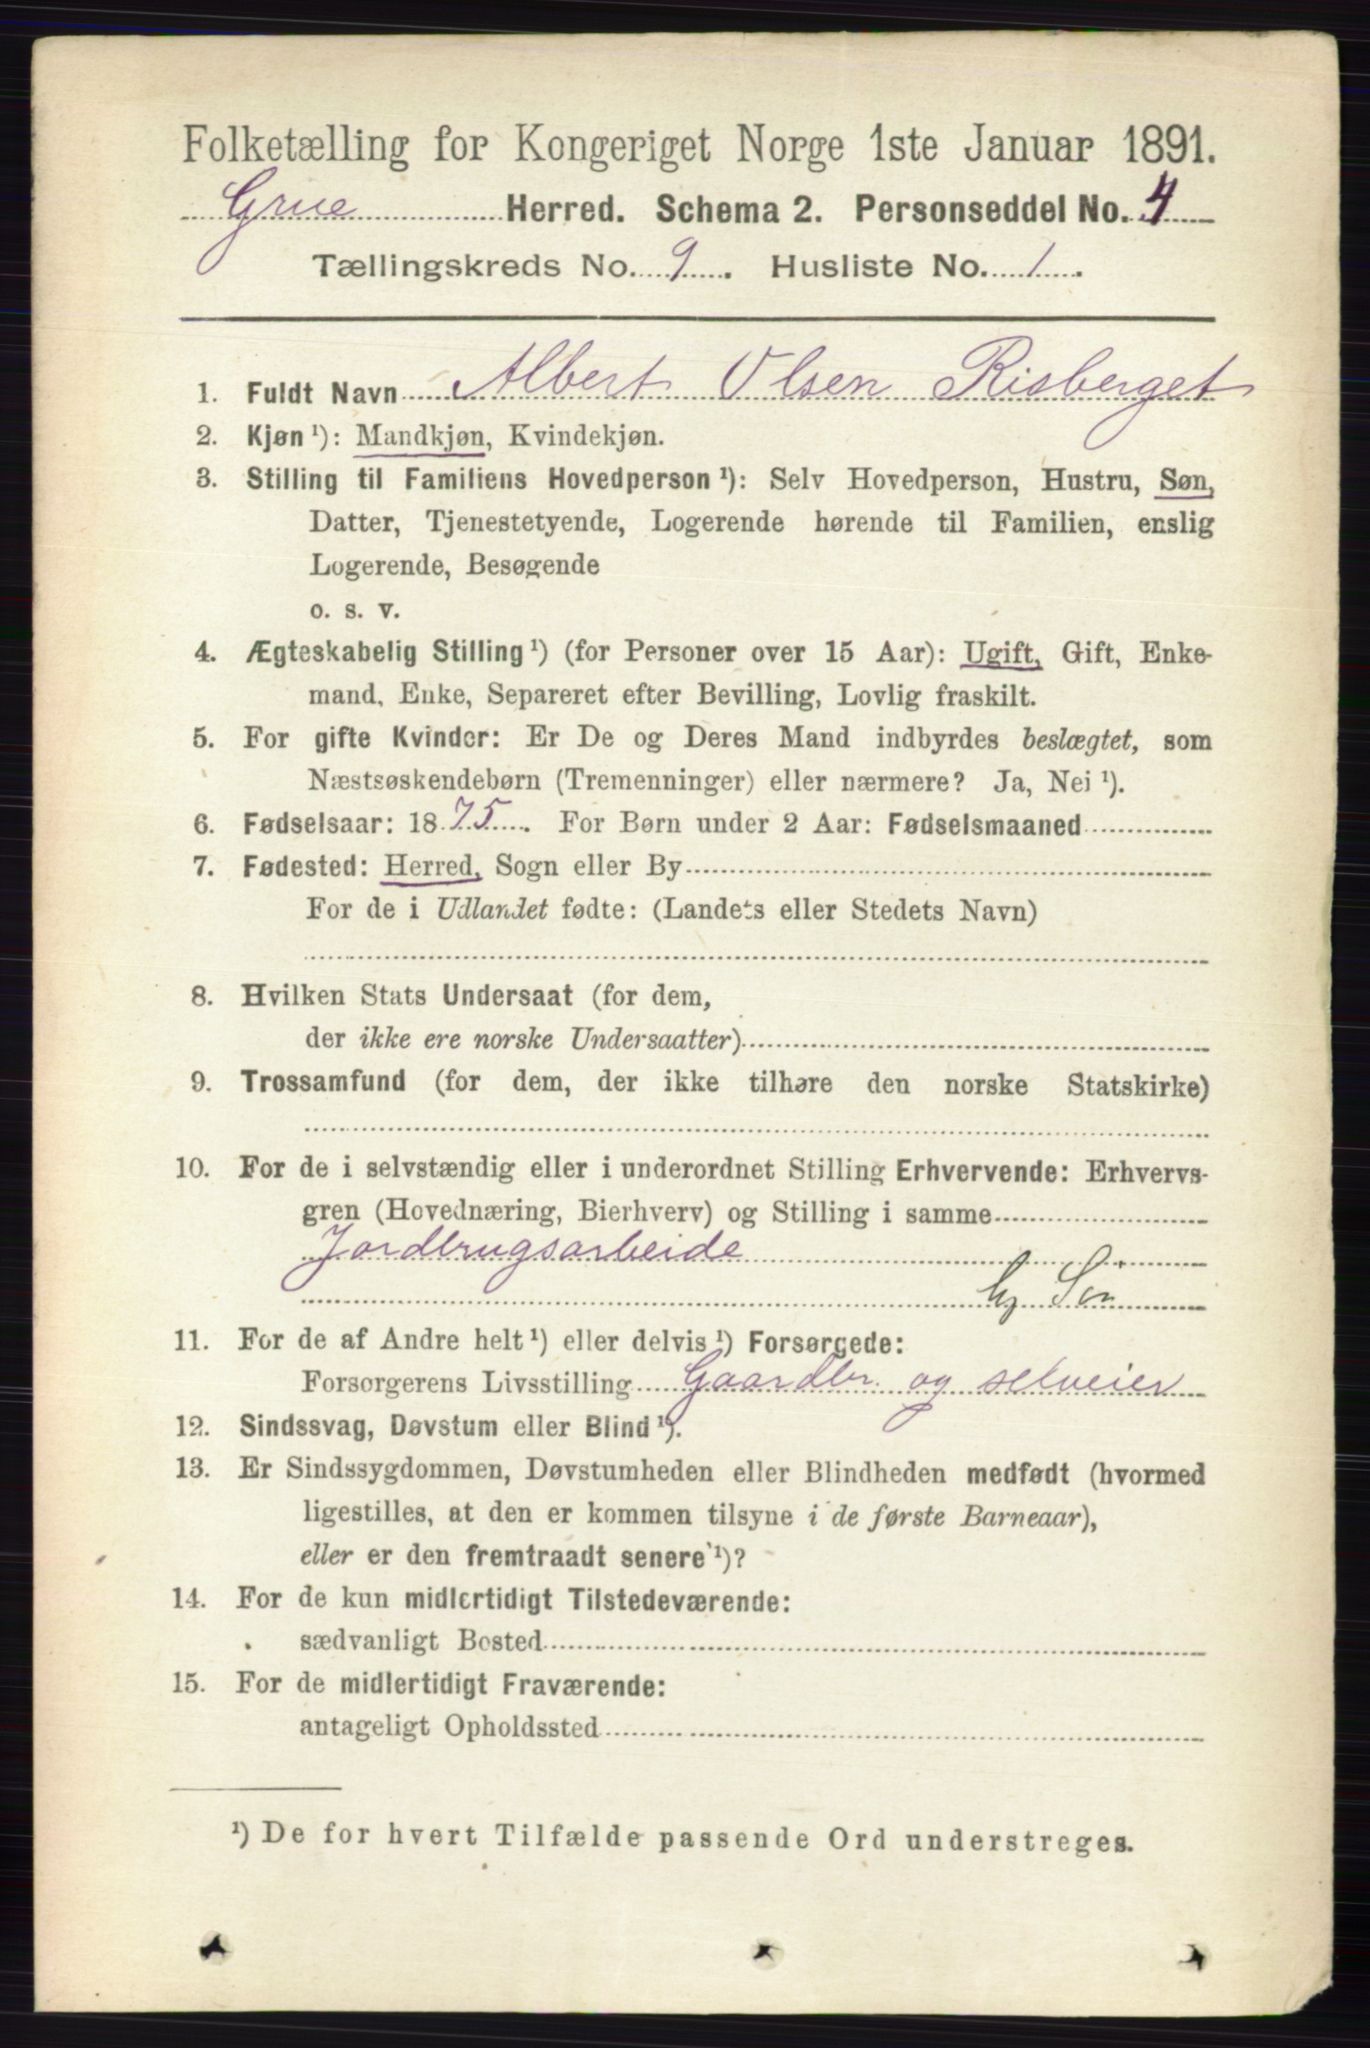 Folketælling for Kongeriget Norge 1ste Januar 1891.
Grue Herred. Schema 2. Personseddel No. 4
Tællingskreds No. 9. Husliste No. 1.
1. Fuldt Navn Albert Olsen Risberget
2. Kjøn ¹): Mandkjøn, Kvindekjøn.
3. Stilling til Familiens Hovedperson ¹): Selv Hovedperson, Hustru, Søn,
Datter, Tjenestetyende, Logerende hørende til Familien, enslig
Logerende, Besøgende
o. s. v.
4. Ægteskabelig Stilling ¹) (for Personer over 15 Aar): Ugift, Gift, Enke-
mand, Enke, Separeret efter Bevilling, Lovlig fraskilt.
5. For gifte Kvinder: Er De og Deres Mand indbyrdes beslægtet, som
Næstsøskendebørn (Tremenninger) eller nærmere? Ja, Nei ¹).
6. Fødselsaar: 1875. For Børn under 2 Aar: Fødselsmaaned
7. Fødested: Herred, Sogn eller By
For de i Udlandet fødte: (Landets eller Stedets Navn)
8. Hvilken Stats Undersaat (for dem,
der ikke ere norske Undersaatter)
9. Trossamfund (for dem, der ikke tilhøre den norske Statskirke)
10. For de i selvstændig eller i underordnet Stilling Erhvervende: Erhvervs-
gren (Hovednæring, Bierhverv) og Stilling i samme
Jordbrugsarbeide
Søn
11. For de af Andre helt ¹) eller delvis ¹) Forsørgede:
Forsorgerens Livsstilling Gaardbr. og selveier
12. Sindssvag, Døvstum eller Blind ¹).
13. Er Sindssygdommen, Døvstumheden eller Blindheden medfødt (hvormed
ligestilles, at den er kommen tilsyne i de første Barneaar),
eller er den fremtraadt senere ¹)?
14. For de kun midlertidigt Tilstedeværende:
sædvanligt Bosted
15. For de midlertidigt Fraværende:
antageligt Opholdssted
¹) De for hvert Tilfælde passende Ord understreges.